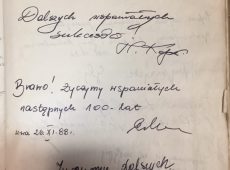 Dalszych wspaniałych
sukcesów!
Brawo! Życzymy wspaniałych
następnych 100-lat
dnia 26.XI.88r.
Dalszych